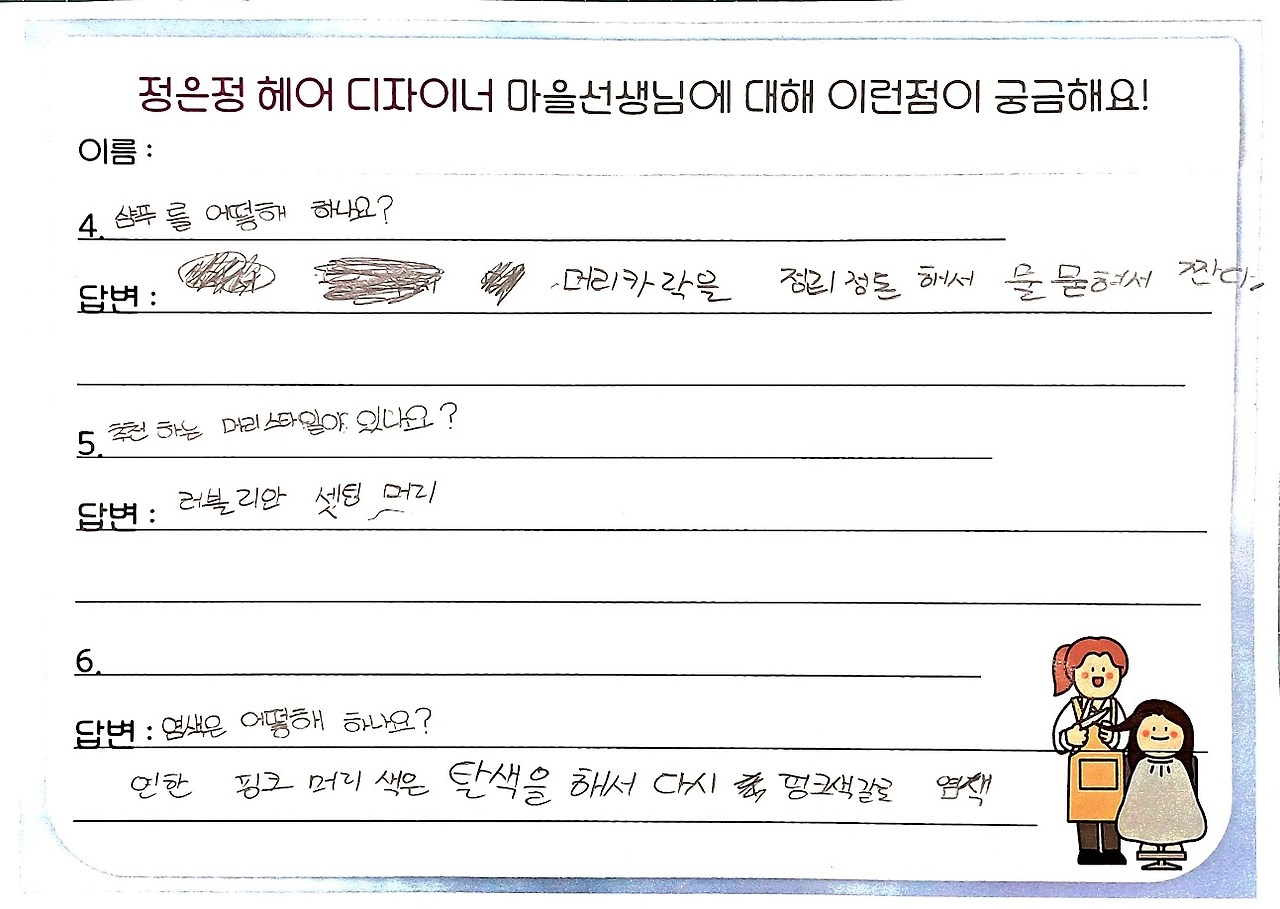 정은정 헤어 디자이너 마을선생님에 대해 이런점이 궁금해요!
이름 :
4. 샴푸를 어떻해 하나요?
답변 : 머리카락을 정리정돈 해서 물 묻혀서 짠다.
5. 추천 하는 머리스타일이 있나요?
답변 : 러블리안 셋팅 머리
6.
답변 : 염색은 어떻해 하나요?
연한 핑크 머리 색은 탈색을 해서 다시 핑크색갈로 염색